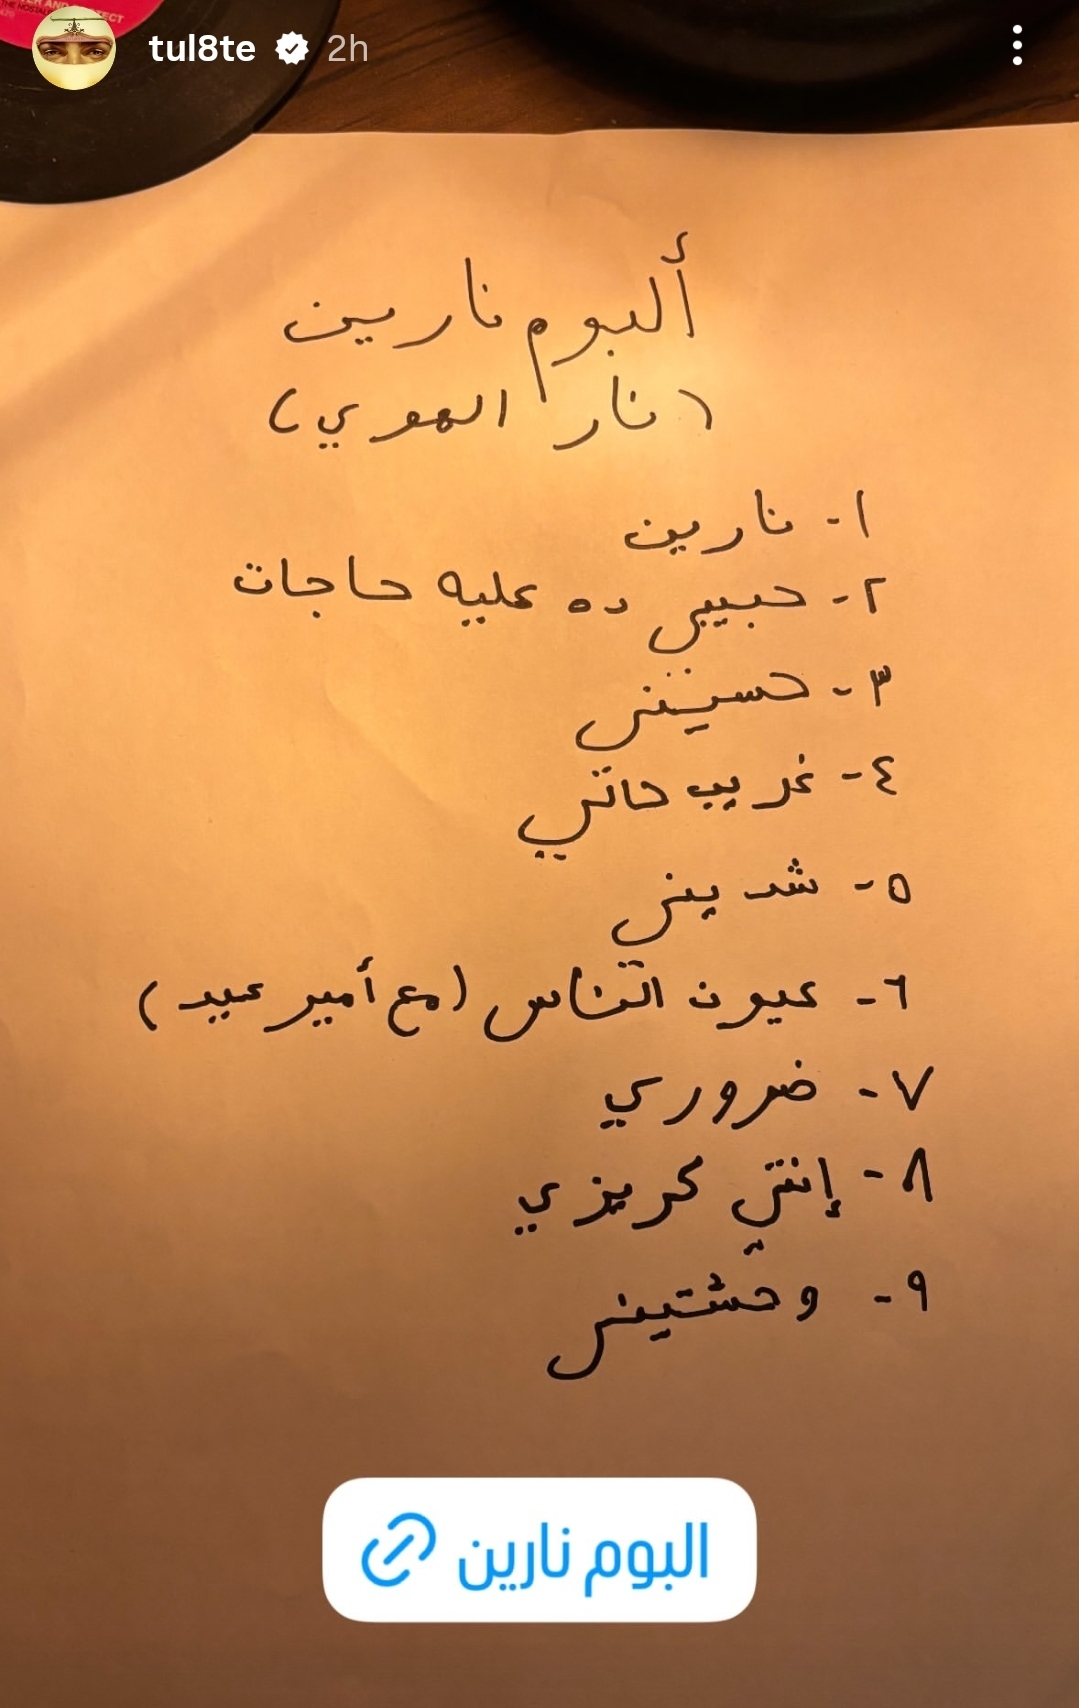 tul8te 2h
ألبوم نارين
(نار الهوي)
١- نارين
٢- حبيبي ده عليه حاجات
٣- حسيني
٤- غريب حالتي
٥- شديني
٦- عيون الناس (مع أمير عيد)
٧- ضروري
٨- إنتي كريزي
٩- وحشتيني
البوم نارين